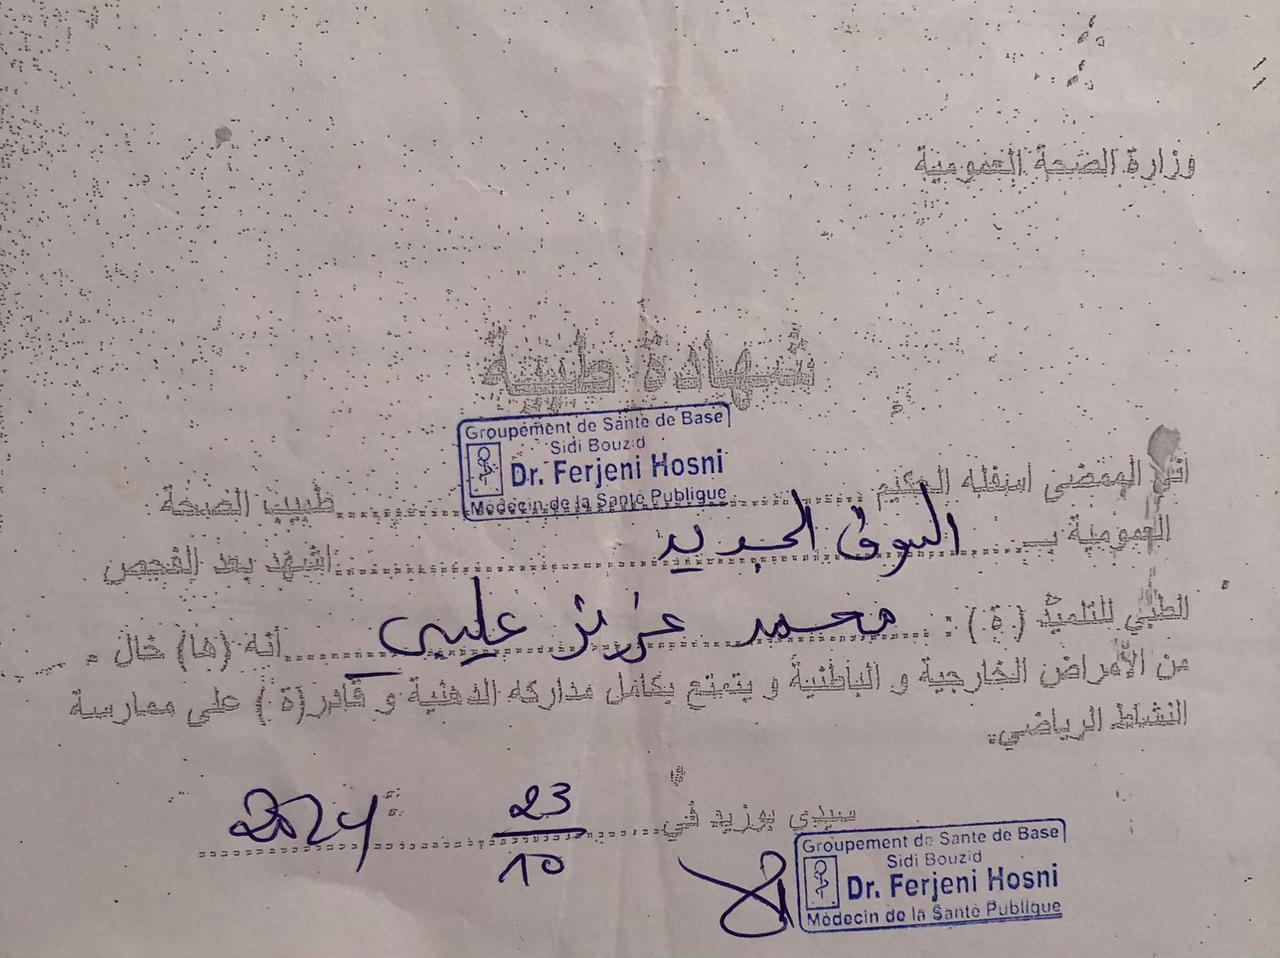 وزارة الصحة العمومية
شهادة طبية
Groupement de Santé de Base
Sidi Bouzid
Dr. Ferjeni Hosni
Médecin de la Santé Publique
اني الممضي اسفله الحكيم .......... طبيب الصحة
العمومية بـ السوق الجديد اشهد بعد الفحص
الطبي للتلميذ (ة) : محمد عزيز عليبي أنه (ها) خال
من الأمراض الخارجية و الباطنية و يتمتع بكامل مداركه الذهنية و قادر (ة) على ممارسة
النشاط الرياضي.
سيدي بوزيد في 23/10 2024
Groupement de Santé de Base
Sidi Bouzid
Dr. Ferjeni Hosni
Médecin de la Santé Publique